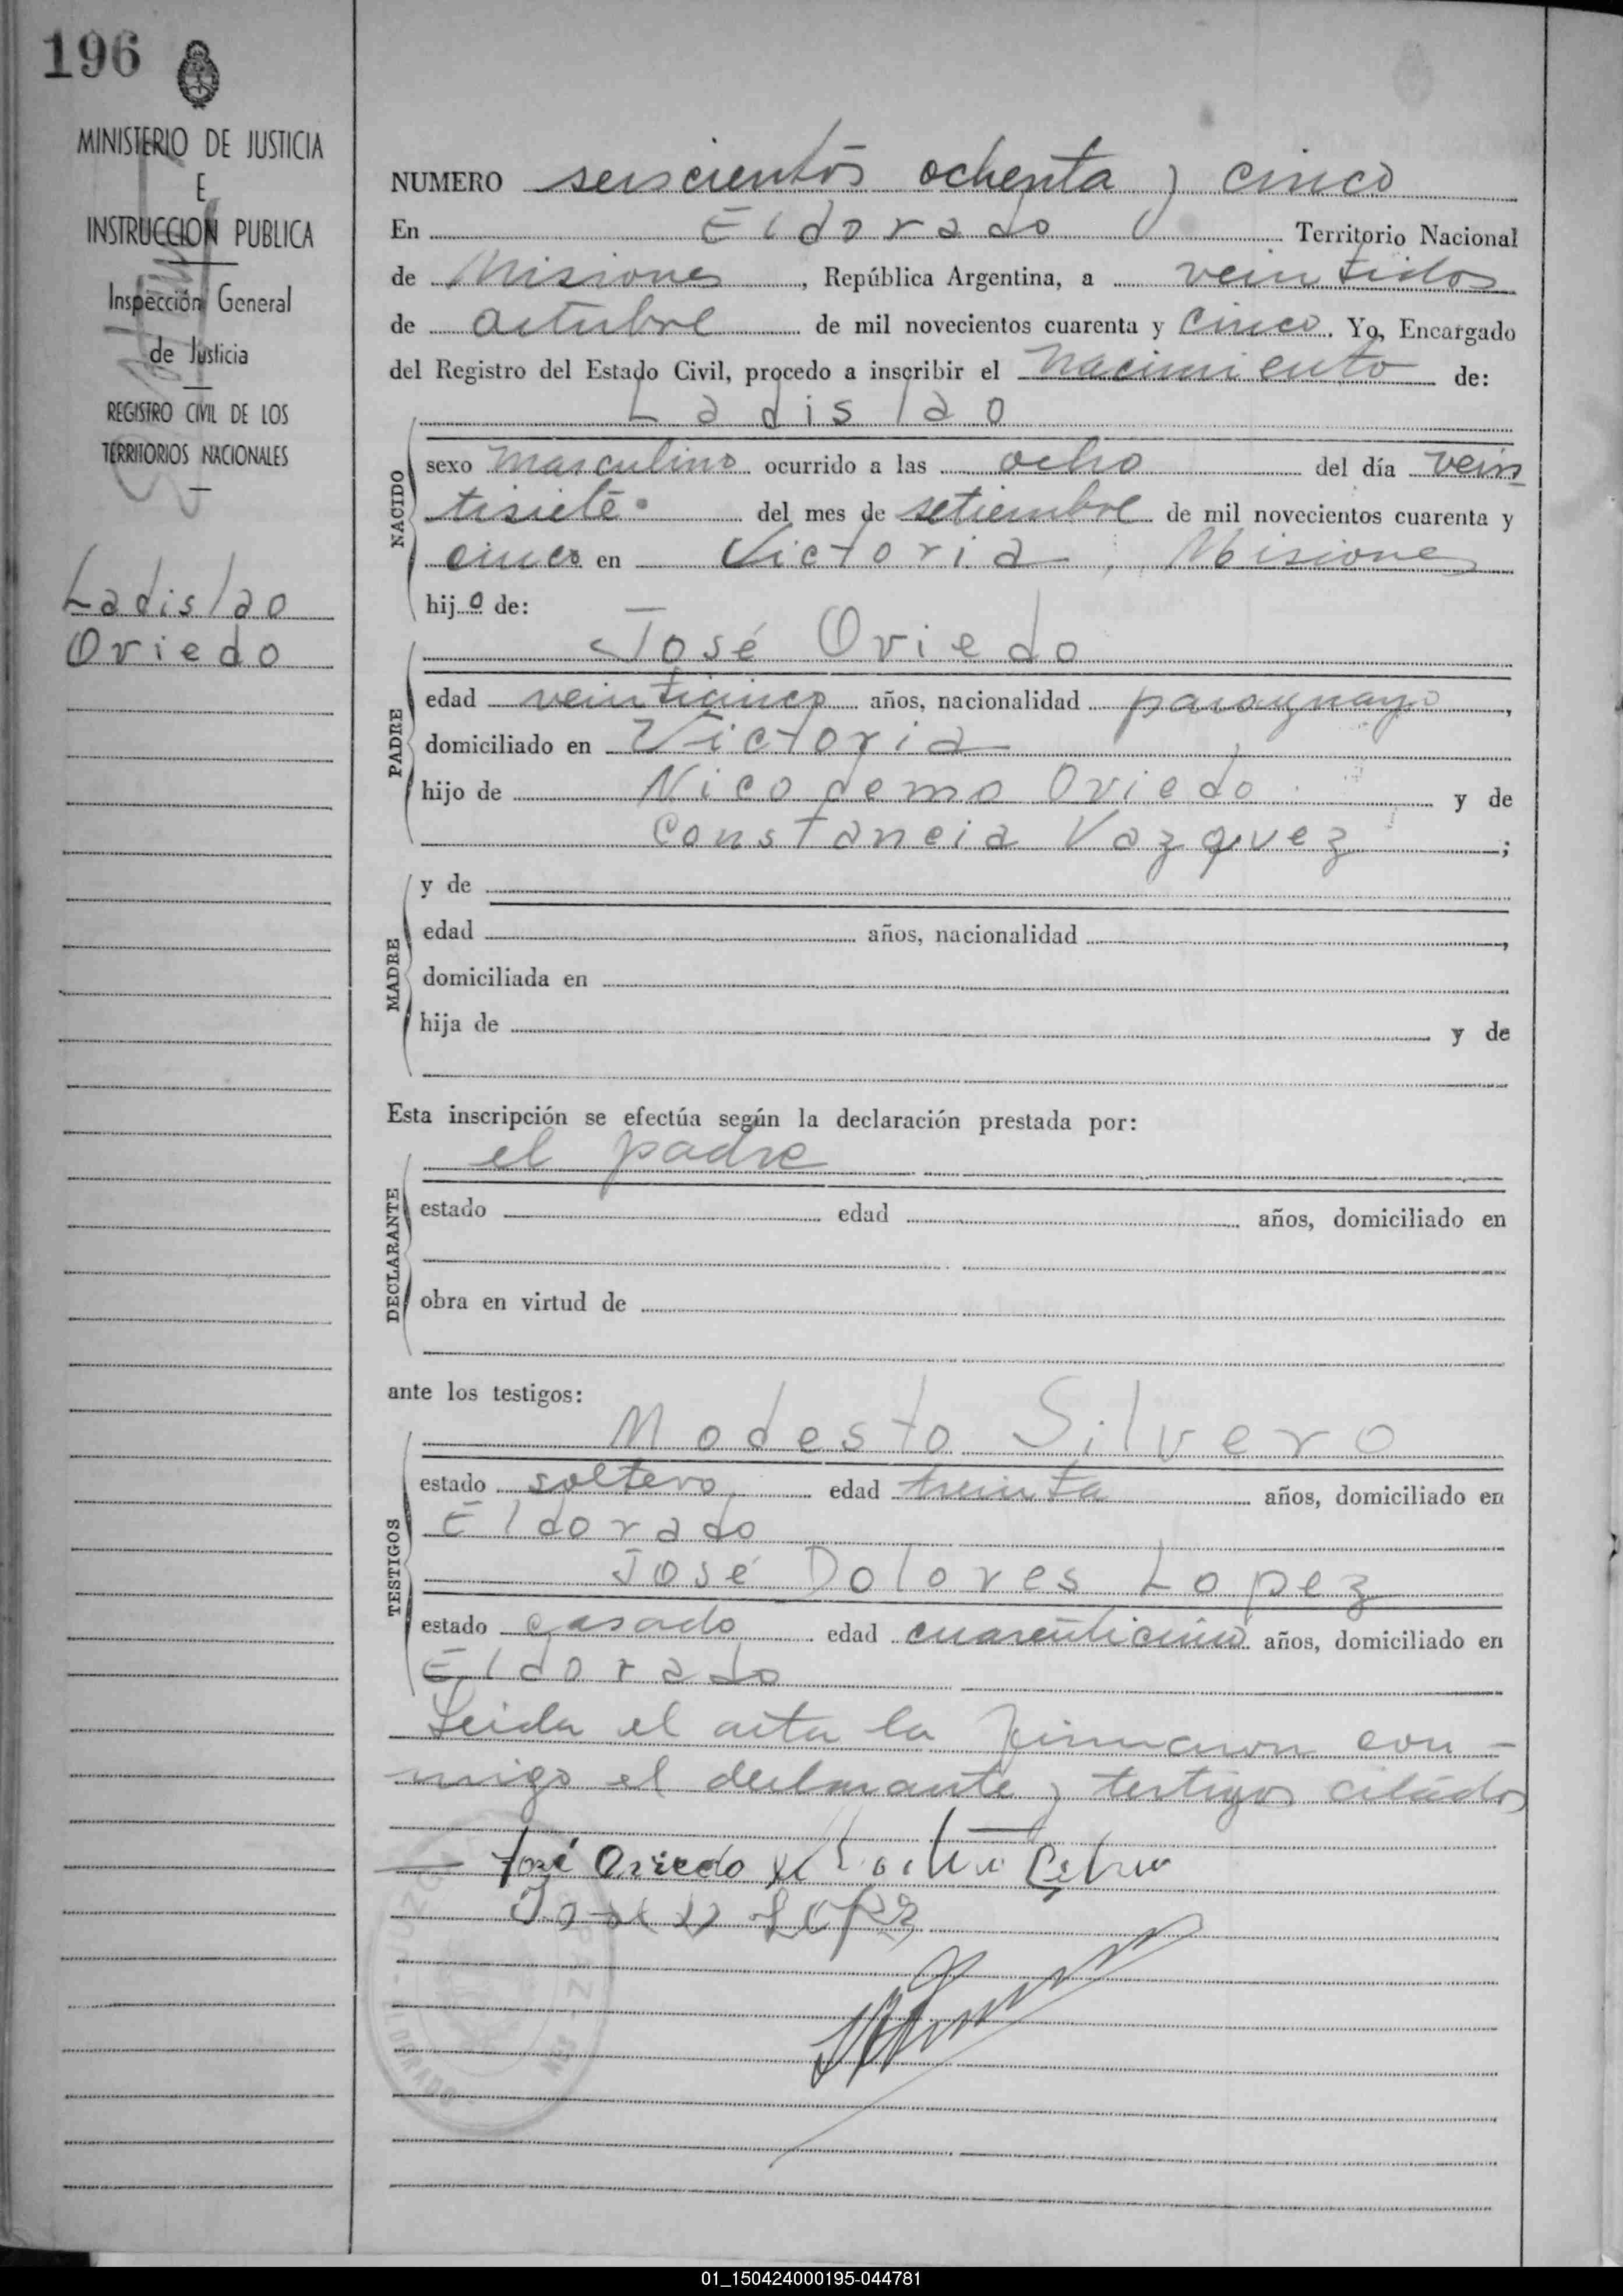 196
MINISTERIO DE JUSTICIA
E
INSTRUCCION PUBLICA
Inspección General
de Justicia
REGISTRO CIVIL DE LOS
TERRITORIOS NACIONALES
Ladislao
Oviedo
NUMERO seiscientos ochenta y cinco
En Eldorado Territorio Nacional
de Misiones, República Argentina, a veintidos
de octubre de mil novecientos cuarenta y cinco. Yo, Encargado
del Registro del Estado Civil, procedo a inscribir el nacimiento de:
Ladislao
NACIDO
sexo masculino ocurrido a las ocho del día vein
tisiete del mes de setiembre de mil novecientos cuarenta y
cinco en Victoria, Misiones
hijo de:
José Oviedo
PADRE
edad veinticinco años, nacionalidad paraguayo,
domiciliado en Victoria
hijo de Nicodemo Oviedo y de
Constancia Vazquez;
MADRE
y de
edad años, nacionalidad,
domiciliada en
hija de y de
Esta inscripción se efectúa según la declaración prestada por:
el padre
DECLARANTE
estado edad años, domiciliado en
obra en virtud de
ante los testigos:
Modesto Silvero
TESTIGOS
estado soltero, edad treinta años, domiciliado en
Eldorado
José Dolores Lopez
estado casado edad cuarenticinco años, domiciliado en
Eldorado
Leida el acta la firmaron con-
migo el declarante y testigos citados
José Oviedo
01_150424000195-044781